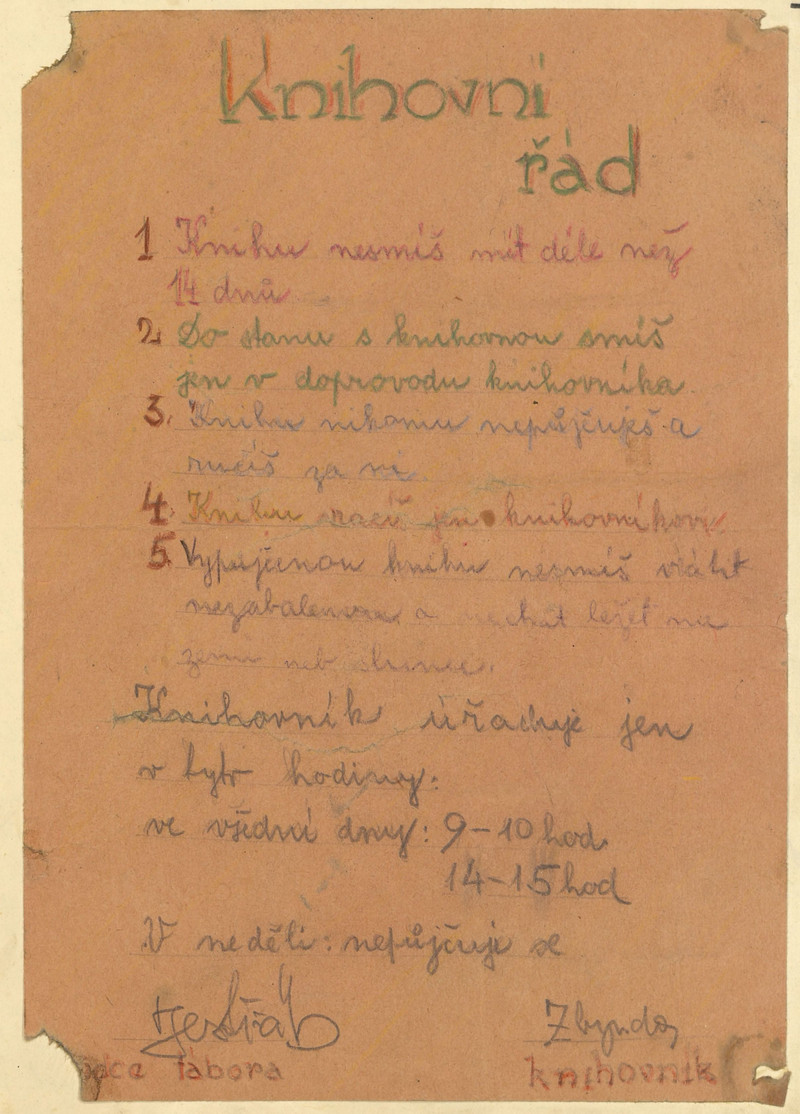 Knihovní
řád
1 Knihu nesmíš mít déle než
14 dnů
2 Do stanu s knihovnou smíš
jen v doprovodu knihovníka
3. Knihu nikomu nepůjčuješ a
ručíš za ni
4. Knihu vracíš jen knihovníkovi
5 Vypujčenou knihu nesmíš vrátit
nezabalenou a nechat ležet na
zemi neb slunci.
Knihovník úřaduje jen
v tyto hodiny:
ve všední dny: 9-10 hod.
14-15 hod
V neděli: nepůjčuje se
Jestřáb Zbyndas
tábora knihovník